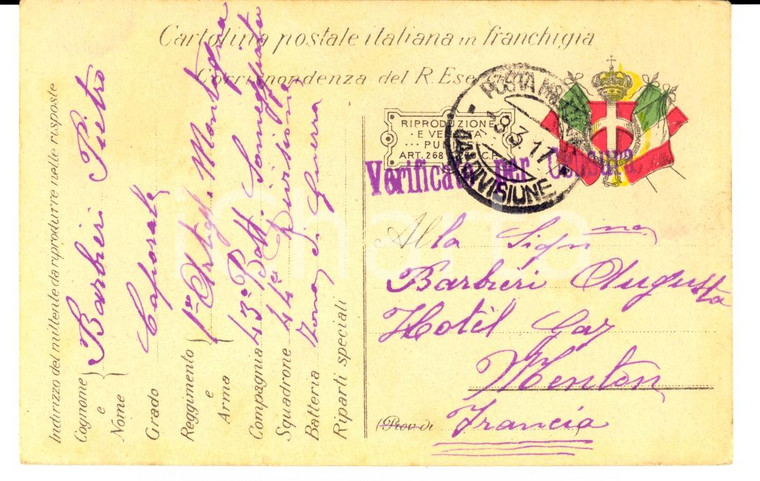 Cartolina postale italiana in franchigia
Corrispondenza del R. Eser
RIPRODUZIONE
E VE
PU
ART. 268 C.P.
POSTA MI
19.3.17
44ª DIVISIONE
Verificat per Censura
Indirizzo del mittente da riprodurre nelle risposte
Cognome e Nome Barbieri Pietro
Grado Caporale
Reggimento e Arma 1º Artigl. Montagna
Compagnia 43ª Batt. Someggiata
Squadrone 44ª Divisione
Batteria Zona di Guerra
Riparti speciali
Alla Sigª
Barbieri Augusta
Hotêl Gaz
Menton
(Prov. di Francia